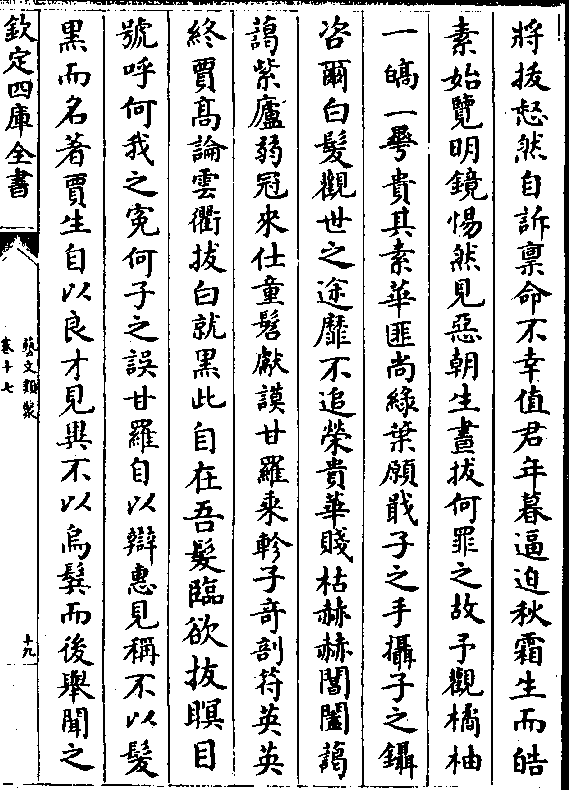 將拔惄然自訴稟命不幸值君年暮逼迫秋霜生而皓
素始覽明鏡惕然見惡朝生晝拔何罪之故予觀橘柚
一皜一曅貴其素華匪尚綠葉願戢子之手攝子之鑷
咨爾白髮觀世之途靡不追榮貴華賤枯赫赫閶闔藹
藹紫廬弱冠來仕童髫獻謨甘羅乘軫子奇剖符英英
終賈高論雲衢拔白就黑此自在吾髮臨欲拔瞑目
號呼何我之寃何子之誤甘羅自以辯惠見稱不以髮
黑而名著賈生自以良才見異不以烏鬢而後舉聞之
欽定四庫全書
藝文類聚
卷十七
十九